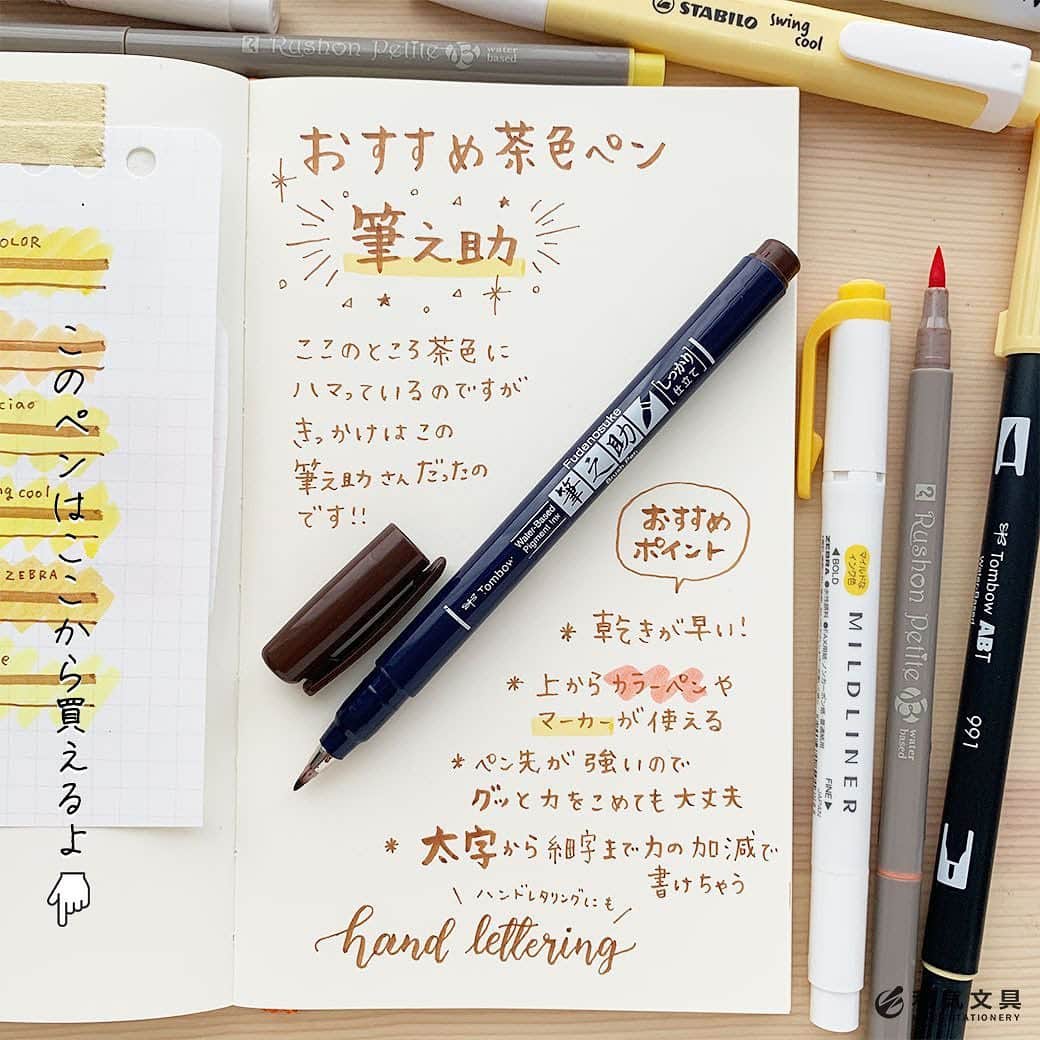 STABILO swing cool
Rushon Petite water based
おすすめ茶色ペン
筆之助
ここのところ茶色に
ハマっているのですが
きっかけはこの
筆之助さんだったの
です!!
おすすめ
ポイント
* 乾きが早い!
* 上からカラーペンや
マーカーが使える
* ペン先が強いので
グッと力をこめても大丈夫
* 太字から細字まで力の加減で
書けちゃう
ハンドレタリングにも
hand lettering
OLOR
ciao
ng cool
ZEBRA
e
このペンはここから買えるよ
Tombow Water-Based Pigment Ink
Fudenosuke
筆之助
Brush Pen
しっかり
仕立て
マイルドな
インク色
ZEBRA
◀BOLD
MILDLINER
FINE▶
JAPAN
Rushon Petite water based
Tombow ABT
991
文具
STATIONERY